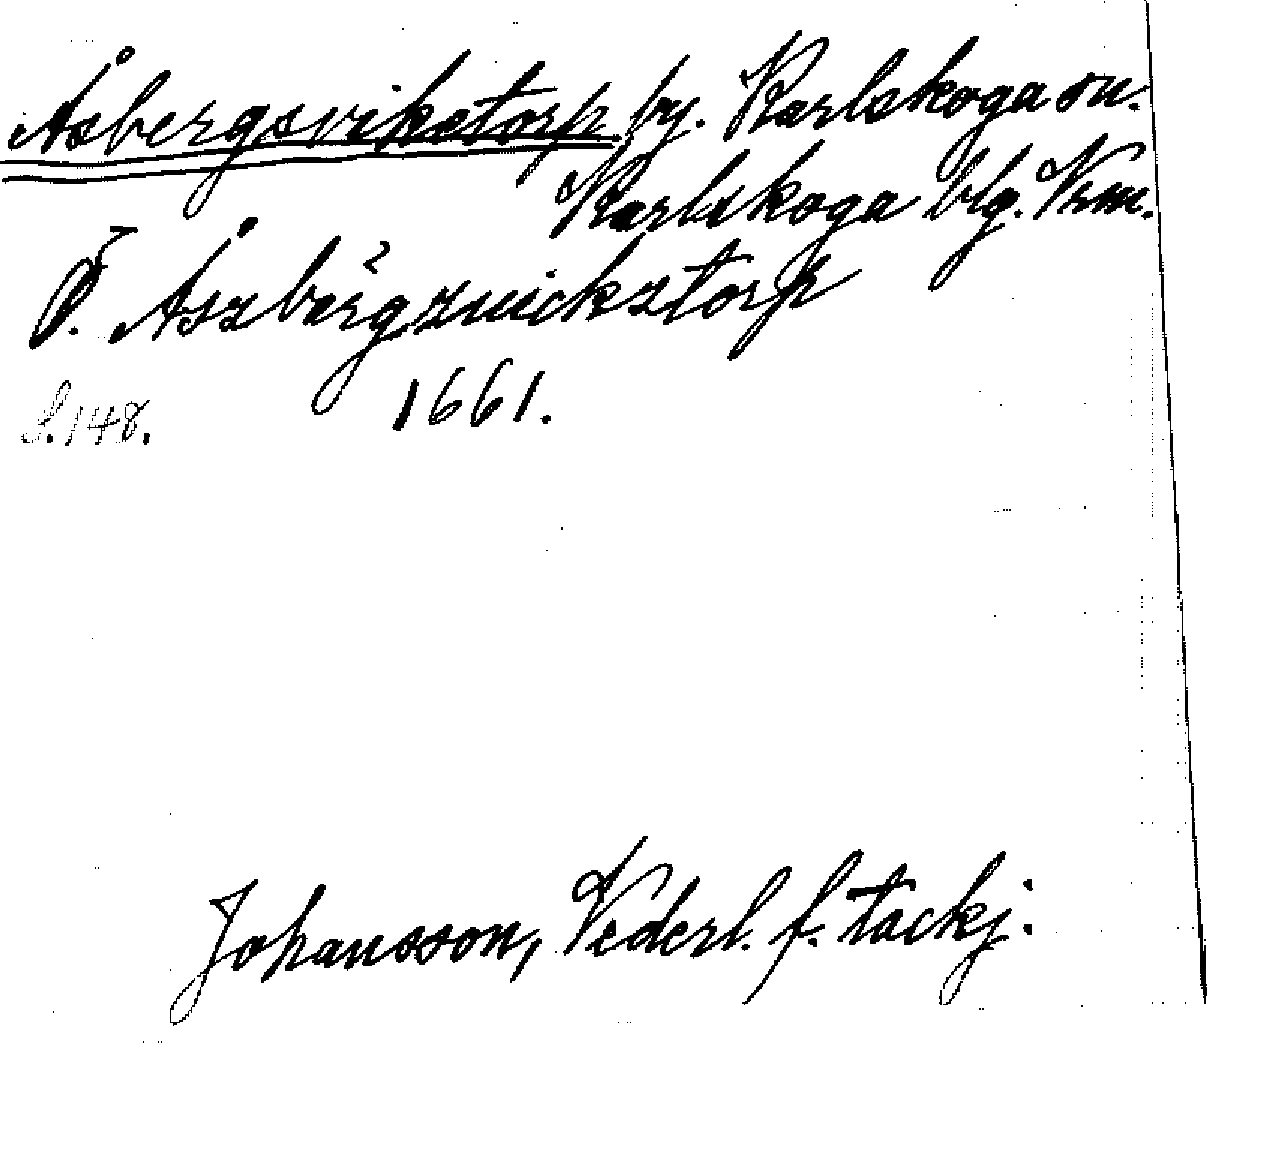 Åsbergsvikstorp by. Karlskoga sn.
Karlskoga blg. Vrm.
Ö. Åszbergzwickztorp
1661.
S. 148.
Johansson, Vederl. f. tackj: